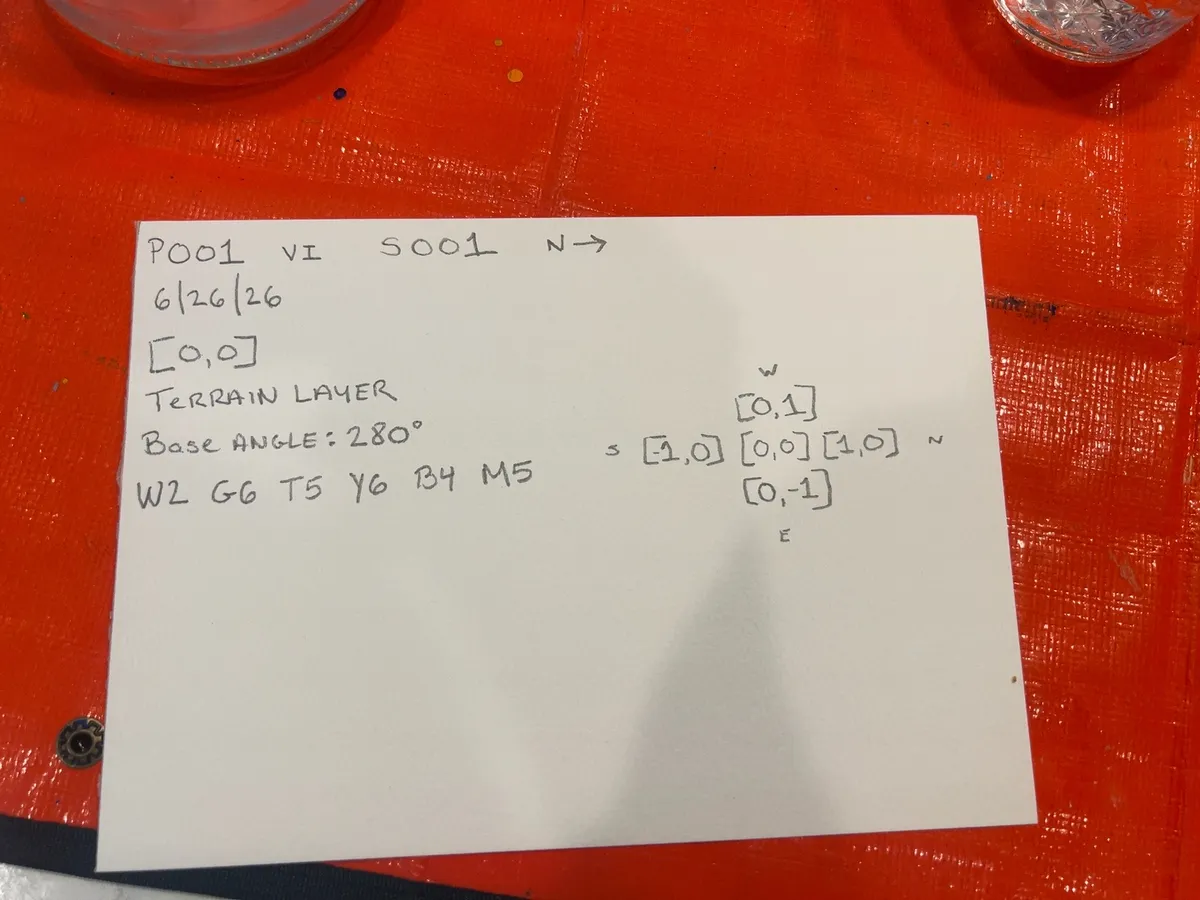 P001 VI S001 N→
6/26/26
[0,0]
TERRAIN LAYER
Base ANGLE: 280°
W2 G6 T5 Y6 B4 M5
W
[0,1]
S [-1,0] [0,0] [1,0] N
[0,-1]
E